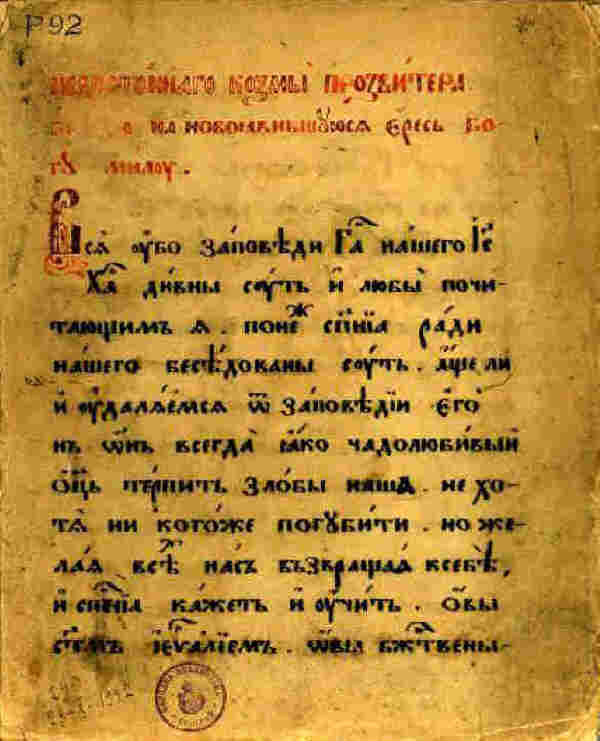 Р92
недостойнаго козмы̀ прозви́тера
на новоꙗвившꙋюсѧ ересь бо-
гꙋ милоу.
Всѧ̀ оу҆бо за́повѣди Га҃ на́шего Іс҃
Ха҃ ди́вны соу́ть и҆ любы̀ почи-
та́ющимъ ѧ. поне́ж сп҃ні́ѧ ра́ди
на́шего бесѣ́дованы соу́ть. а҆́ще ли
и҆ оу҆далѧ́емсѧ ѿ за́повѣдїи е҆го̀
нъ ѻ҆́нъ всегда̀ ꙗ҆́ко чадолюби́вый
ѻ҆ц҃ъ те́рпитъ зло́бы на́шѧ. не хо-
тѧ̀ ни кого́же погꙋби́ти. но же-
ла́ѧ всѣх на́съ възвраща́ѧ ксебѣ̀,
и҆ сп҃ні́ѧ ка́жетъ и҆ оу҆́читъ. ѻ҆́вы
ст҃мъ і҆еѵⷢ҇а́лїемъ. ѻ҆́выѧ бж҃твены-